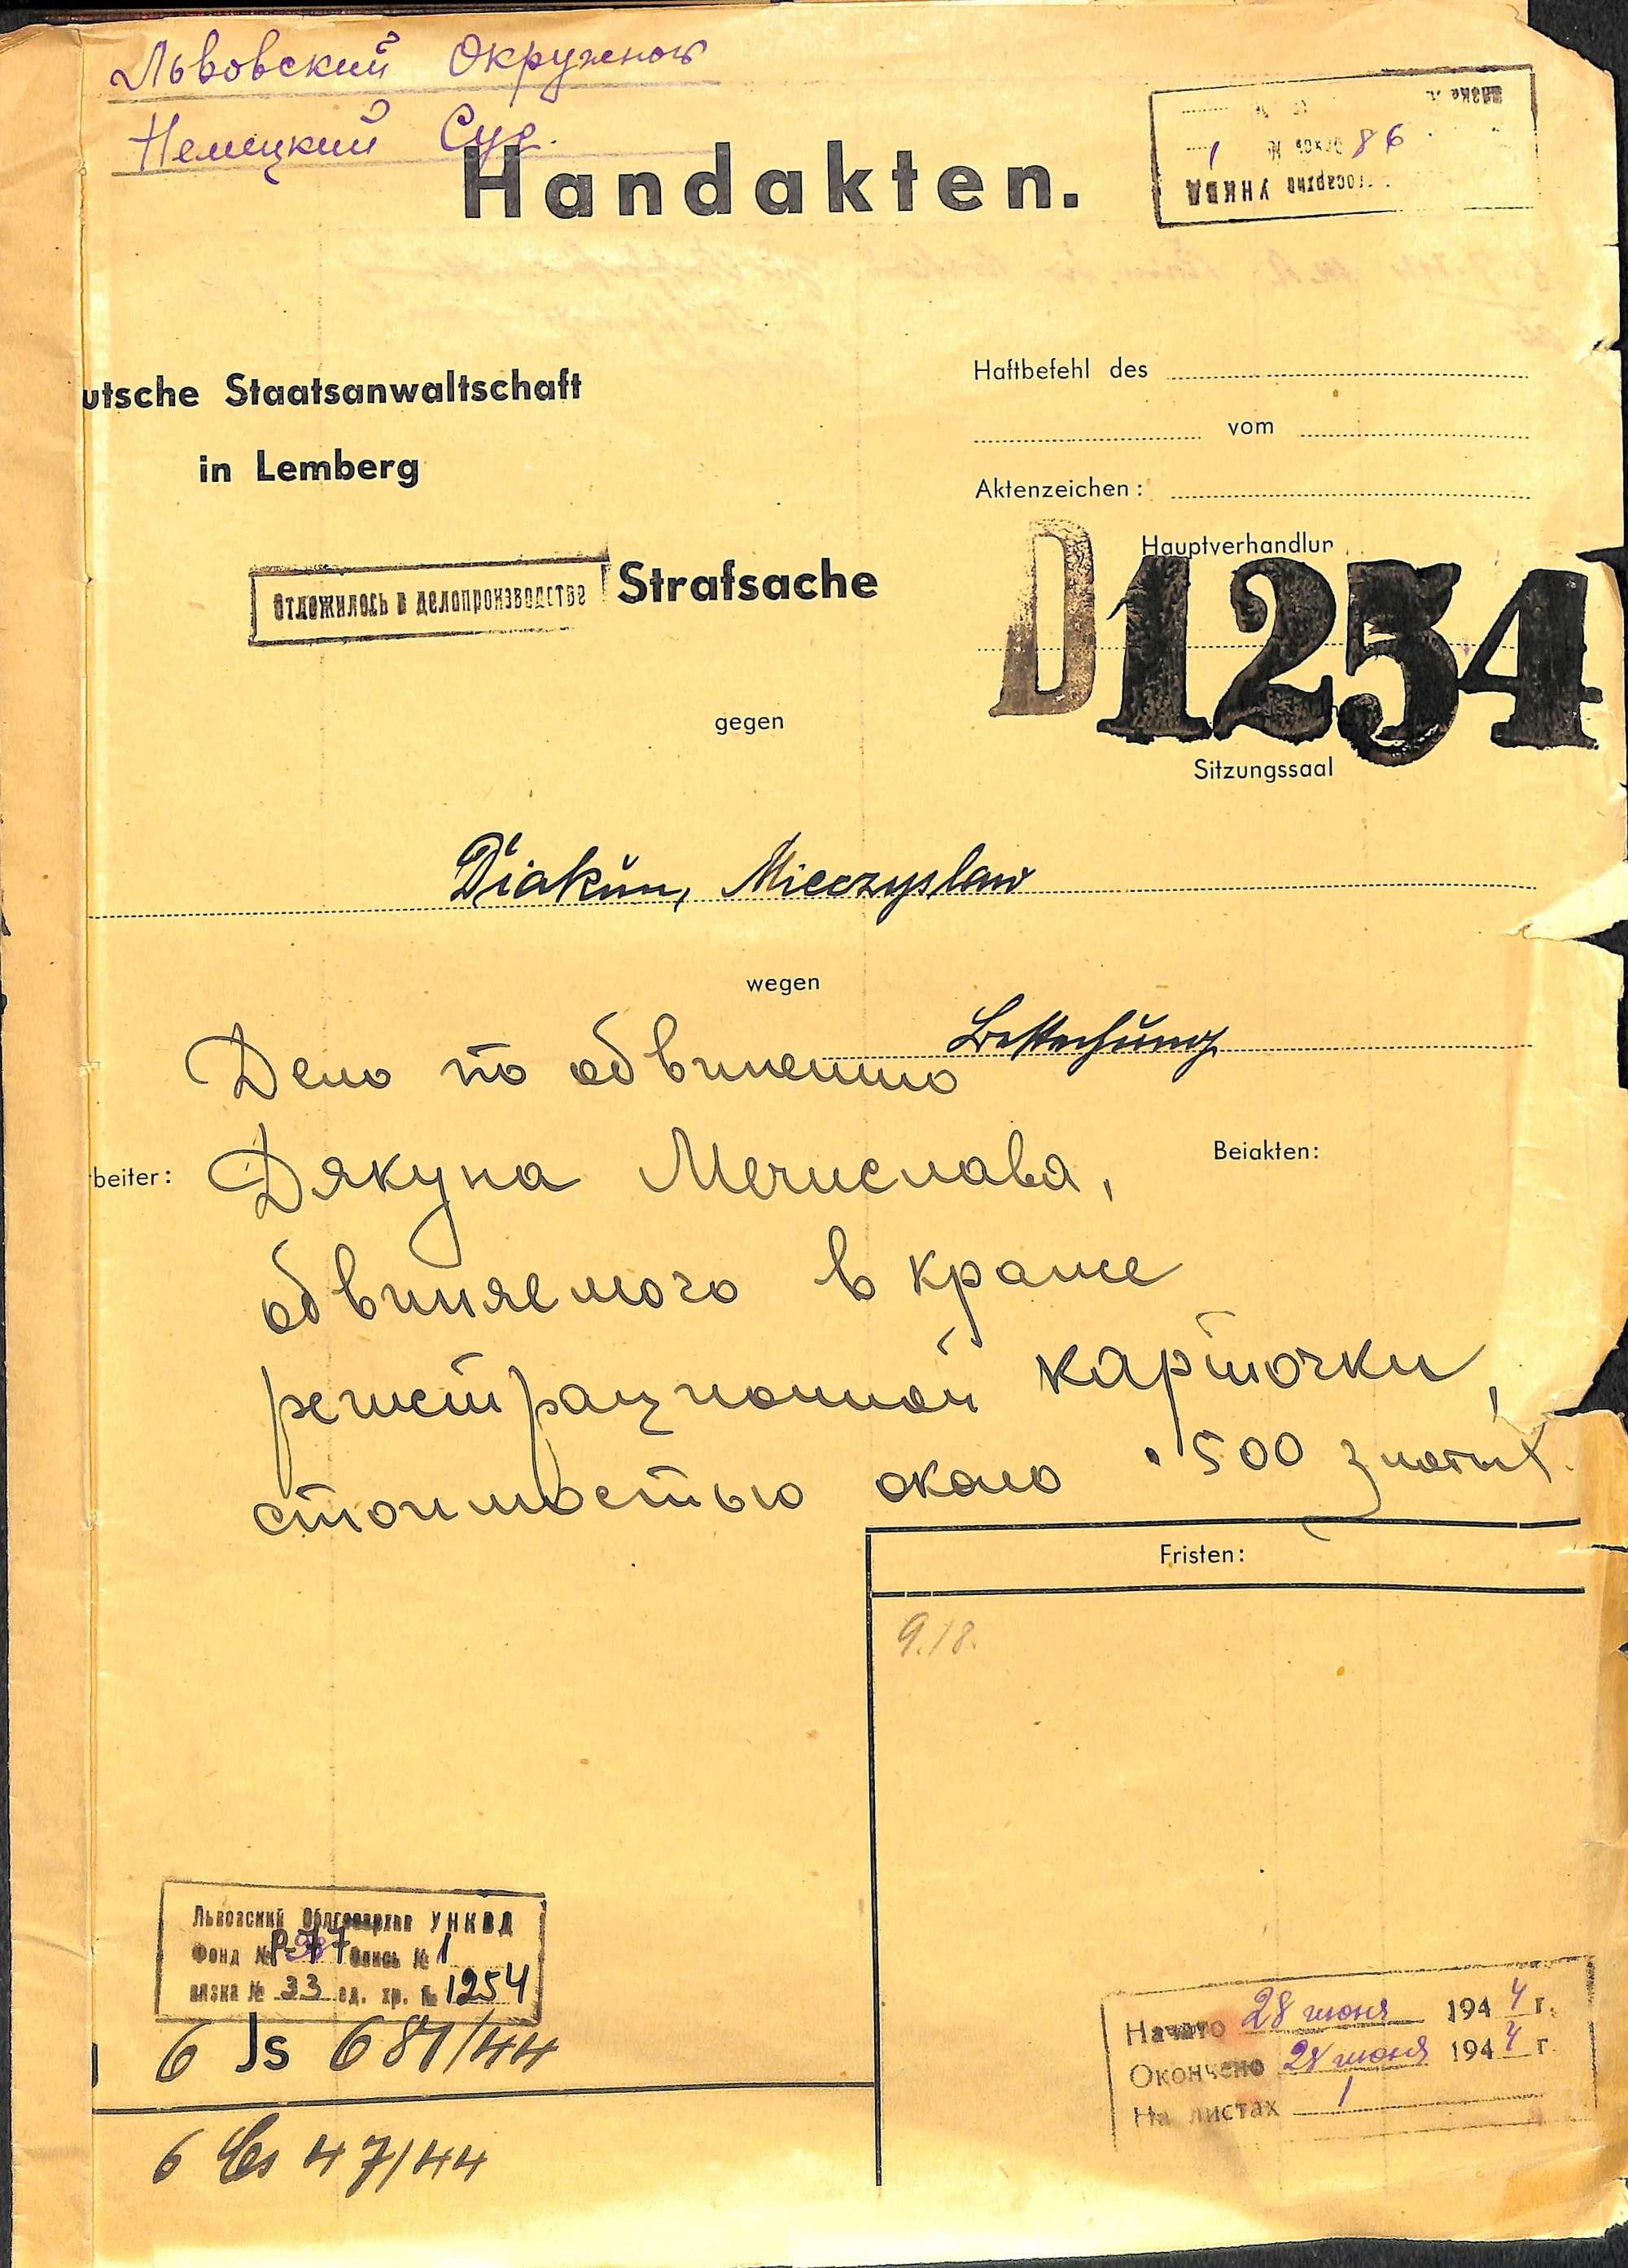 Львовский Окружной
Немецкий Суд.
Handakten.
1 86
Госархив УНКВД
utsche Staatsanwaltschaft
in Lemberg
Haftbefehl des
vom
Aktenzeichen:
Hauptverhandlun
D1254
Отложилось в делопроизводстве
Strafsache
gegen
Sitzungssaal
Diakun, Mieczyslaw
wegen
Bestechung
Дело по обвинению
beiter:
Дякуна Мечислава,
Beiakten:
обвиняемого в краже
регистрационной карточки,
стоимостью около 500 злотых.
Fristen:
9./8.
Львовский Облгосархив УНКВД
Фонд № Р-77 Опись № 1
вязка № 33 ед. хр. № 1254
6 Js 681/44
6 Cs 47/44
Начато 28 июня 1944 г.
Окончено 28 июня 1944 г.
На листах 1